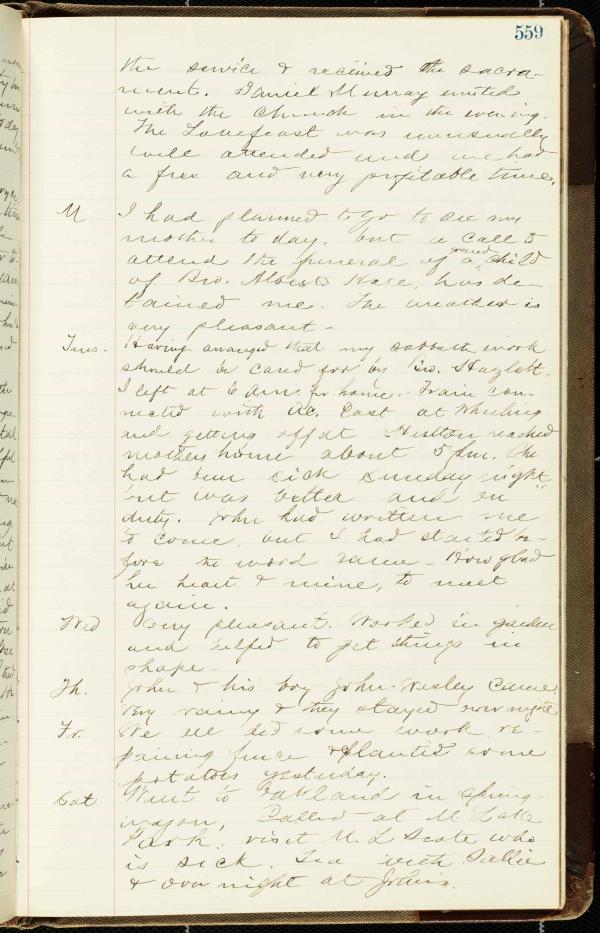 559
the service & received the sacra-
ment. Daniel Murray united
with the Church in the evening.
The Lovefeast was unusually
well attended and we had
a free and very profitable time.
M I had planned to go to see my
mother to day, but a call to
attend the funeral of a grand child
of Bro. Hare, has de-
tained me. The weather is
very pleasant -
Tues. Having arranged that my sabbath work
should be cared for by Bro. Hazlett,
I left at 6 am for home. Train con-
nected with Ac. East at Wheeling
and getting off at reached
mothers home about 5 pm. She
had been sick Sunday night,
but was better and on
duty. John had written me
to come, but I had started be-
fore the word came - How glad
her heart & mine, to meet
again.
Wed Very pleasant. Worked in garden
and helped to get things in
shape -
Th. John & his boy John Wesley Came.
Very rainy & they stayed over night
Fr. We all did some work re-
pairing fence & planted some
potatoes yesterday.
Sat Went to Oakland in spring
wagon, Called at Mt Lake
Park, visit M. L Scott who
is sick. Tea with Sallie
& over night at John's.